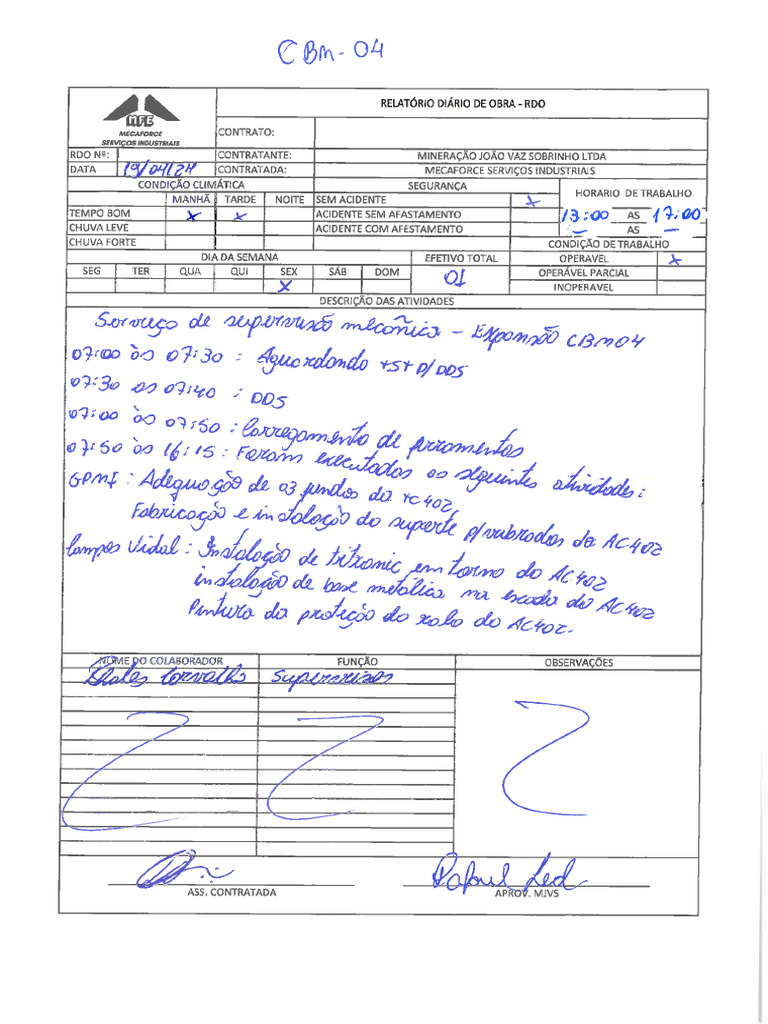 CBM-04
MFE
MECAFORCE
SERVIÇOS INDUSTRIAIS
RELATÓRIO DIÁRIO DE OBRA - RDO
CONTRATO:
RDO Nº:
CONTRATANTE: MINERAÇÃO JOÃO VAZ SOBRINHO LTDA
DATA 19/04/24 CONTRATADA: MECAFORCE SERVIÇOS INDUSTRIAIS
CONDIÇÃO CLIMÁTICA SEGURANÇA HORARIO DE TRABALHO
MANHÃ TARDE NOITE SEM ACIDENTE x
TEMPO BOM x x ACIDENTE SEM AFASTAMENTO 13:00 AS 17:00
CHUVA LEVE ACIDENTE COM AFASTAMENTO - AS -
CHUVA FORTE CONDIÇÃO DE TRABALHO
DIA DA SEMANA EFETIVO TOTAL OPERAVEL x
SEG TER QUA QUI SEX SÁB DOM 01 OPERÁVEL PARCIAL
x INOPERAVEL
DESCRIÇÃO DAS ATIVIDADES
Serviço de supervisão mecânica - Expansão CBM04
07:00 às 07:30 : Aguardando +S+ p/ DDS
07:30 as 07:40 : DDS
07:00 às 07:50 : Carregamento de ferramentas
07:50 às 16:15 : Foram executados as seguintes atividades:
GPMI : Adequação de 03 fundos do TC402
Fabricação e instalação do suporte p/ do AC402
Campos Vidal : Instalação de tritronic em torno do AC402
instalação de base metálica na escada do AC402
Pintura da proteção do rolo do AC402.
NOME DO COLABORADOR FUNÇÃO OBSERVAÇÕES
Carvalho Supervisor
ASS. CONTRATADA
APROV. MJVS